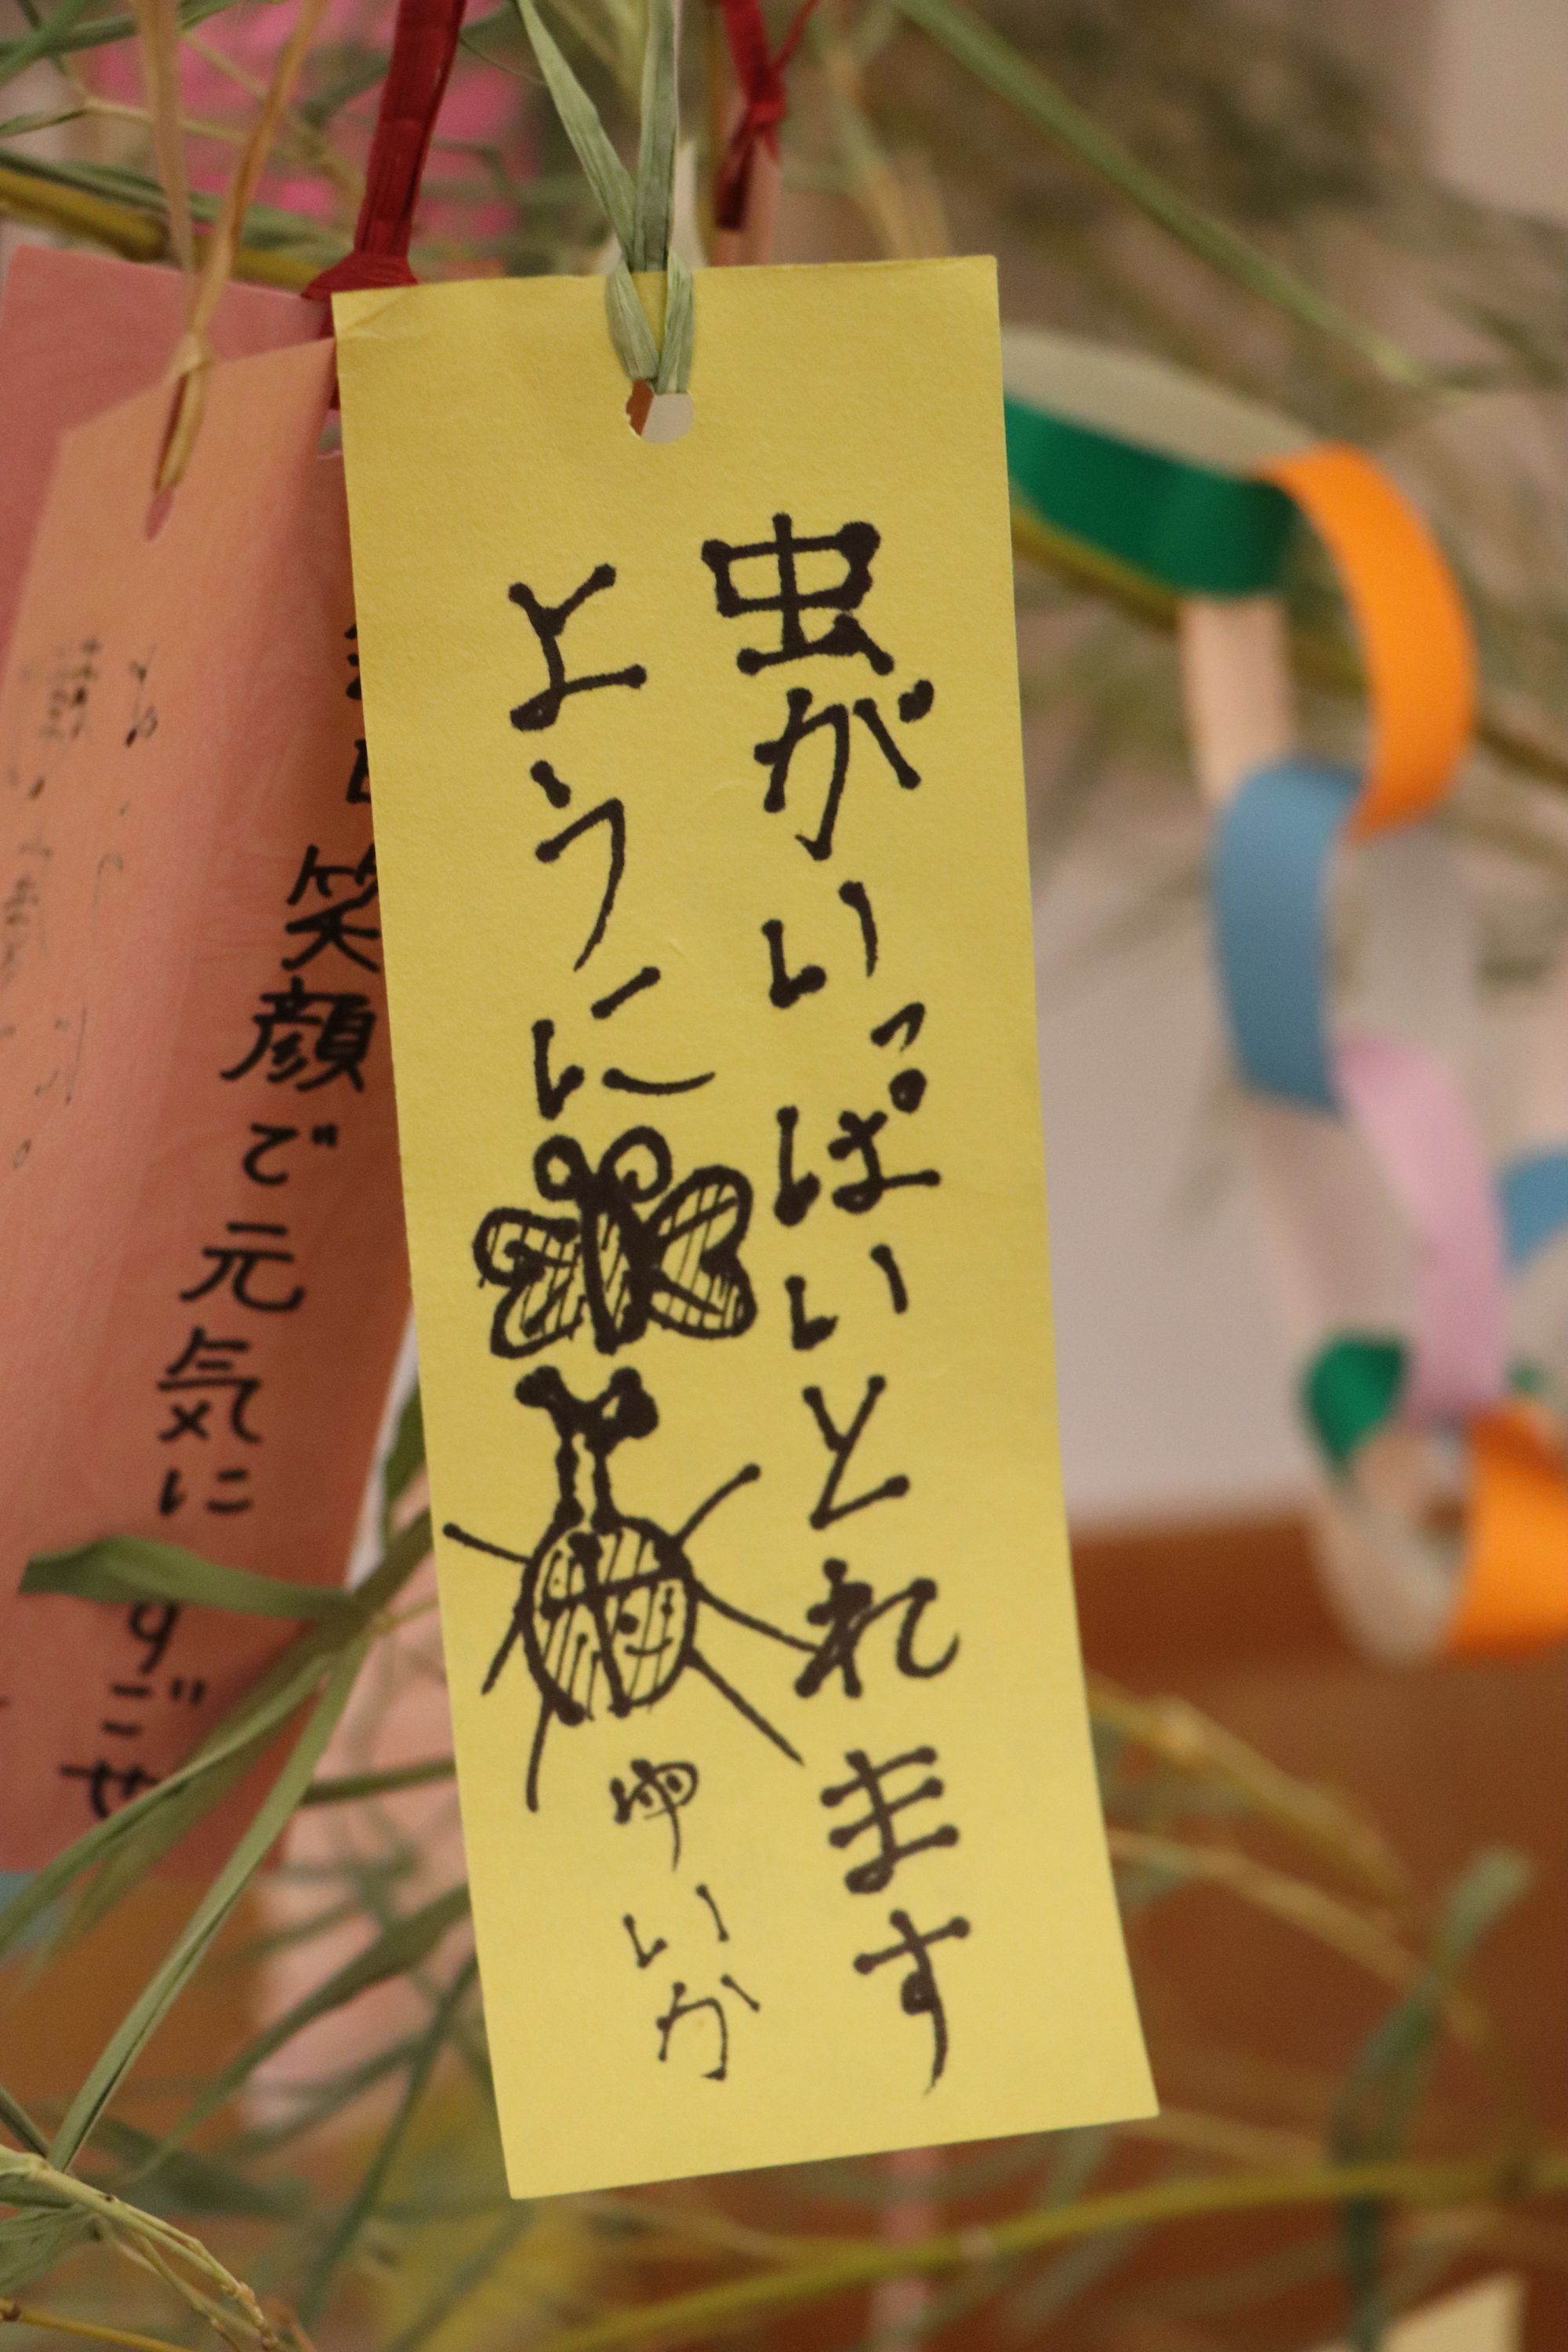 虫がいっぱいとれます
ように
ゆいか
笑顔で元気に
すごせ